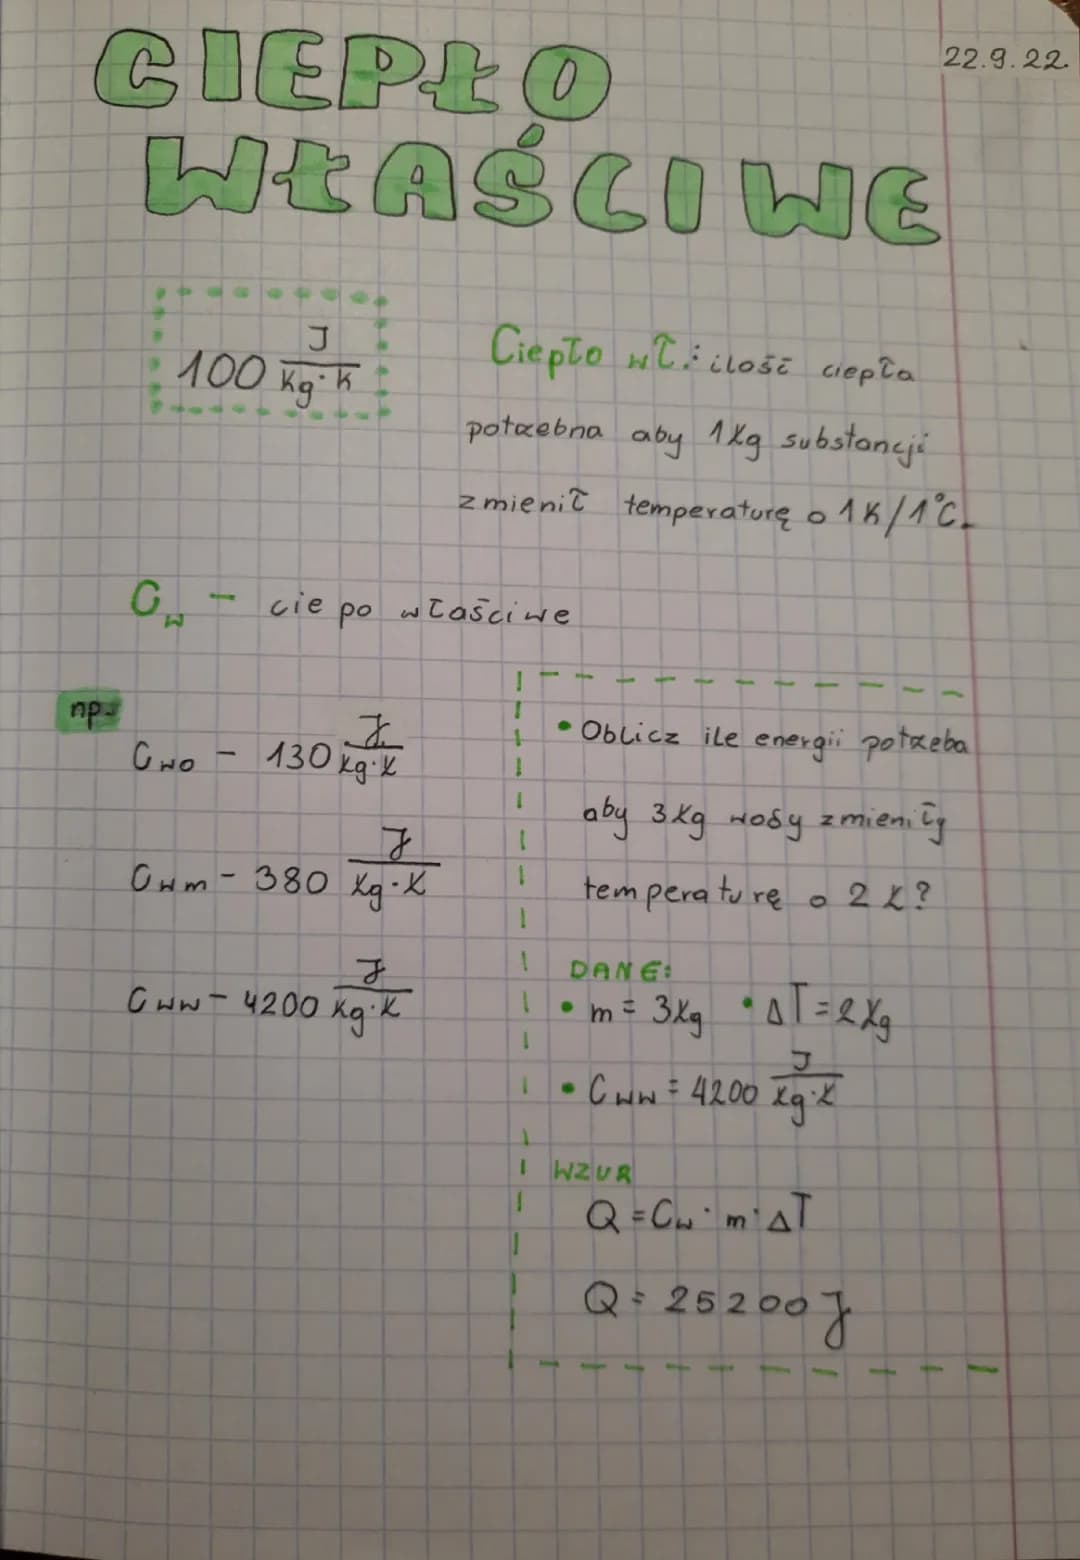 22.9.22.
CIEPŁO
WŁAŚCIWE
100 J/Kg·K
Ciepło wł.: ilość ciepła
potrzebna aby 1Kg substancji
zmienił temperaturę o 1K/1°C.
Cw - ciepo właściwe
np.
Cwo - 130 J/Kg·K
Cwm - 380 J/Kg·K
Cww - 4200 J/Kg·K
• Oblicz ile energii potrzeba
aby 3Kg wody zmieniły
temperaturę o 2 K?
DANE:
• m = 3Kg • ΔT = 2Kg
• Cww = 4200 J/Kg·K
WZUR
Q = Cw · m · ΔT
Q = 25200 J